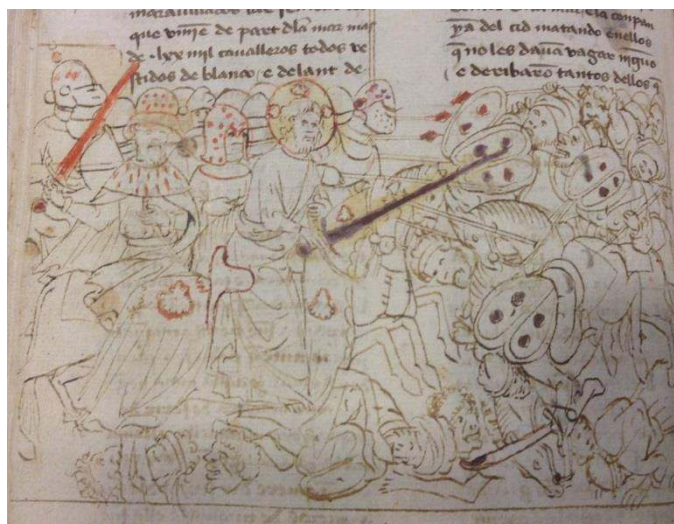 que vinie de part dla mar mas
de .lxx mil caualleros todos ve
stidos de blanco / e delant de
ya del cid matando enellos
q̃ no les daua vagar ninguo
/ e derribarõ tantos dellos q̃